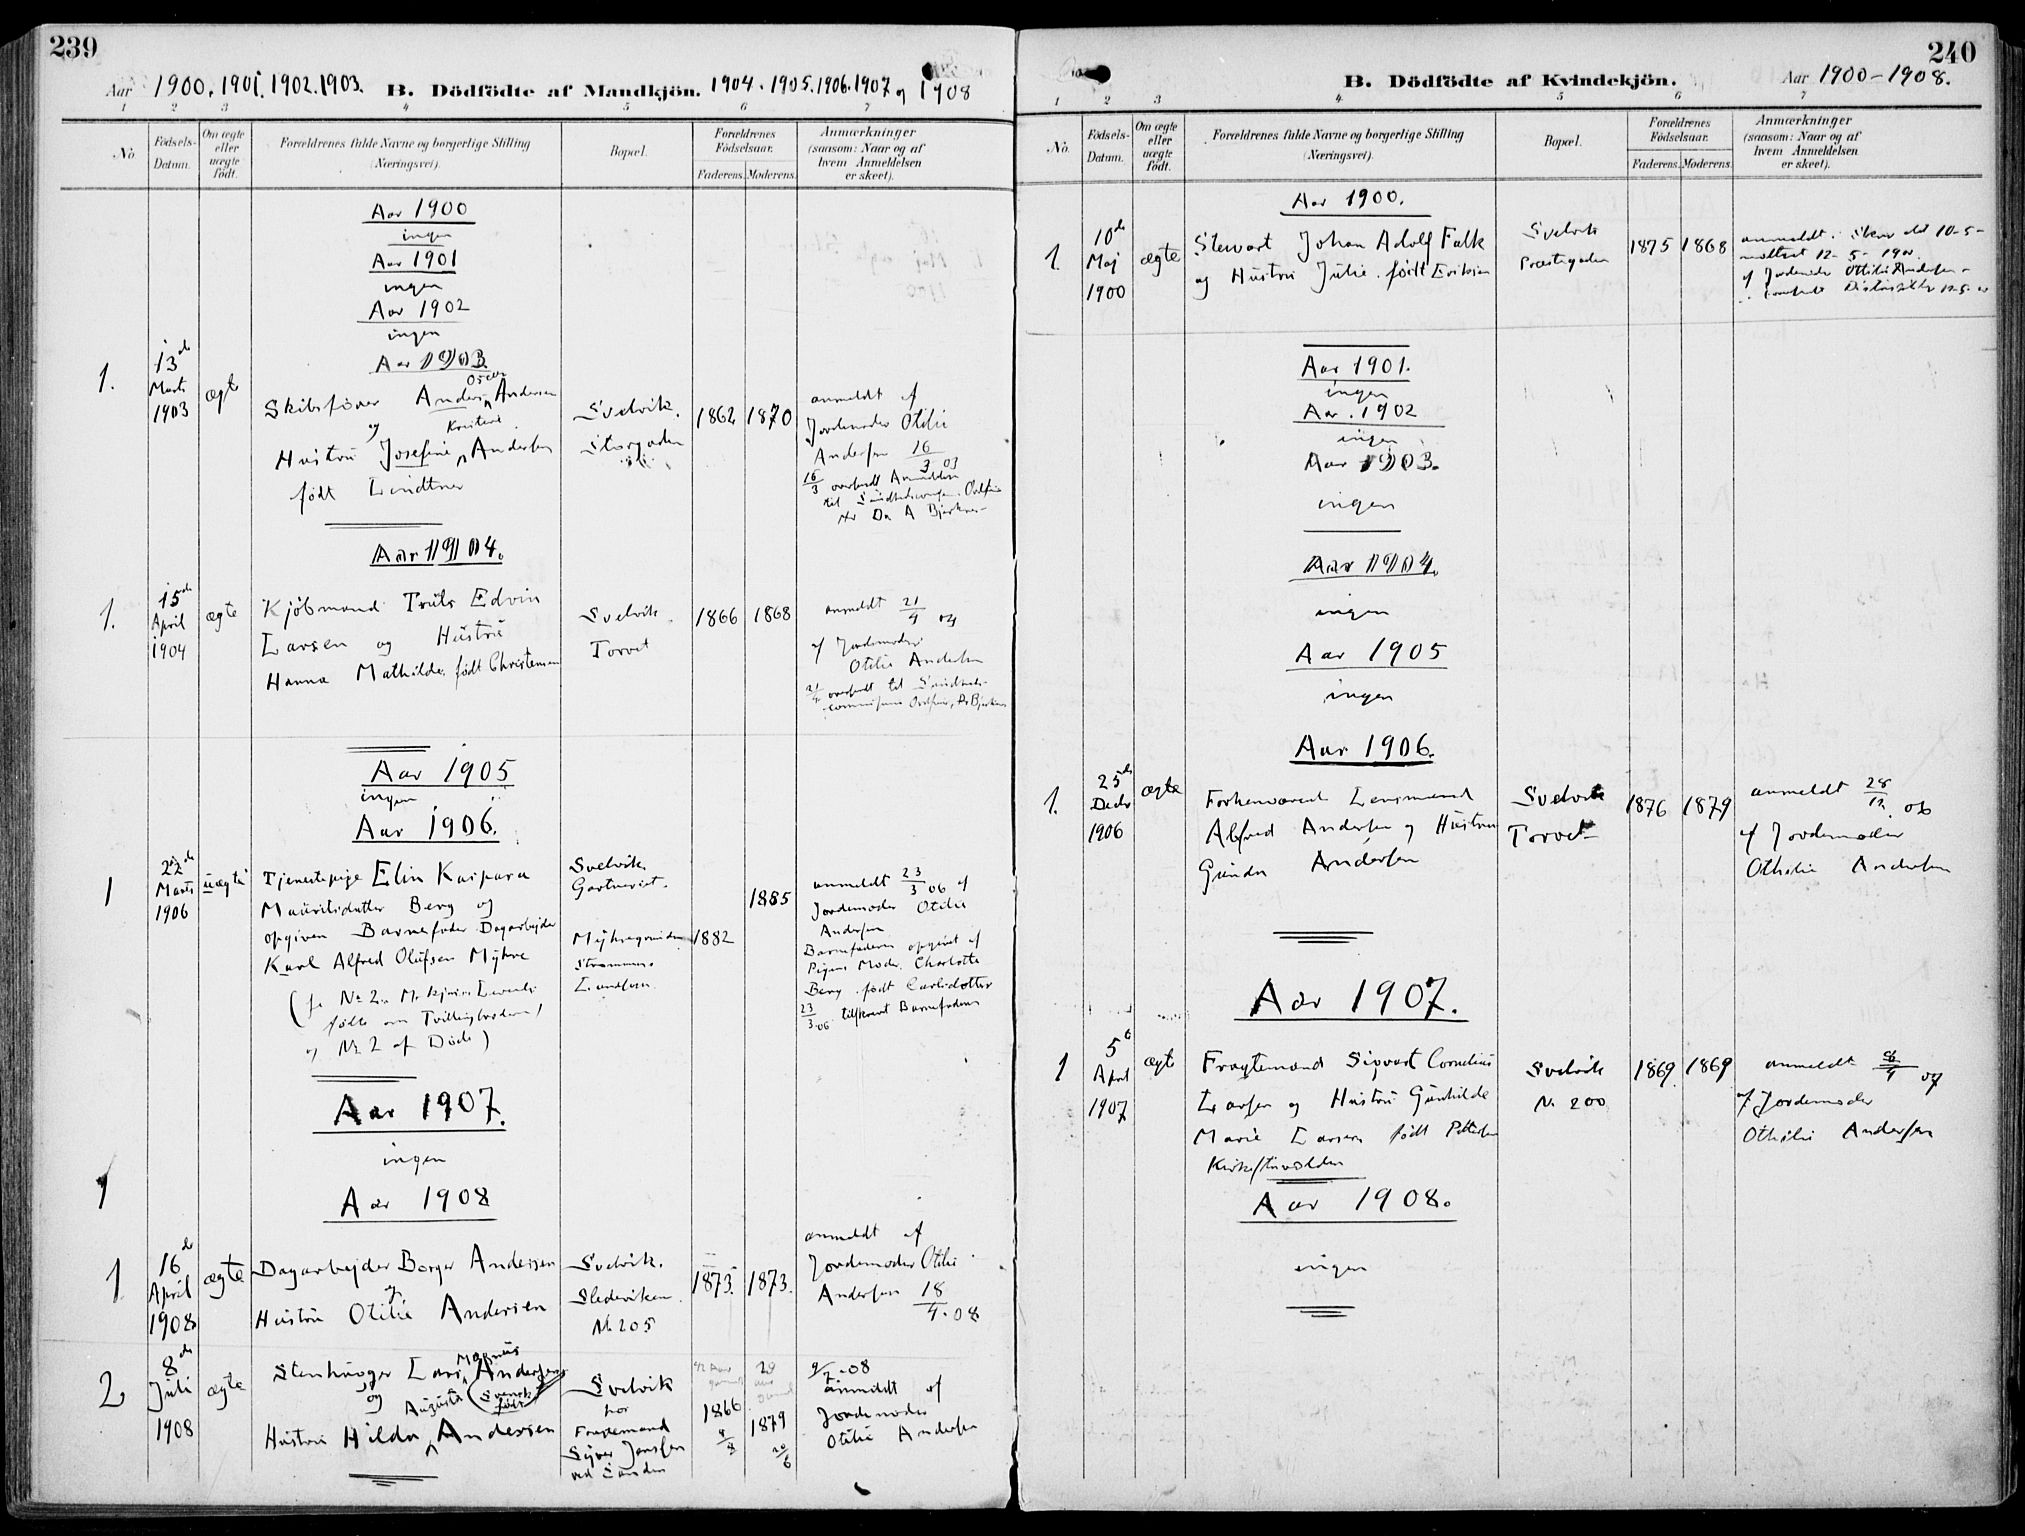 239
Aar 1900. 1901. 1902. 1903. B. Dödfödte af Mandkjön. 1904. 1905. 1906. 1907 og 1908
1 2 3 4 5 6 7
No
Fødsels-
Datum.
Om ægte
eller
uægte
født.
Forældrenes fulde Navne og borgerlige Stilling
(Næringsvei).
Bopæl.
Forældrenes
Fødselsaar.
Faderens. Moderens.
Anmærkninger
(saasom: Naar og af
hvem Anmeldelsen
er skeet).
Aar 1900
ingen
Aar 1901
ingen
Aar 1902
ingen
Aar 1903
1.
13de
Marts
1903
ægte
Oscar
Skibsfører Anders Andersen
og
Hustru Josefine Andersen
født Lindtner
Svelvik.
Storgaden
1862 1870
anmeldt af
Jordemoder Otilie
Andersen 16/3 03
16/3 oversendt Anmeldelsen
til
Aar 1904.
1.
15de
April
1904
ægte
Kjøbmand Truls Edvin
Larsen og Hustru
Hanna Mathilde, født Christensen
Svelvik
Torvet
1866 1868
anmeldt 21/4 04
af Jordemoder
Otilie Andersen
21/4 oversendt til Sundheds-
Aar 1905
ingen
Aar 1906.
1
22de
Marts
1906
uægte
Tjenestepige Elin Kaspara
Mauritsdatter Berg og
opgiven Barnefader Dagarbejder
Karl Alfred Olufsen Myhre
født
og No 2 af Døde)
Svelvik
Gartneriet.
Strømmen.
1882
1885
anmeldt 23/3 06 af
Jordemoder Otilie
Andersen
Barnefaderen opgivet af
Pigens Moder, Charlotte
Berg født Carlsdotter
23/3 06 tilskrevet Barnefaderen
Aar 1907.
ingen
1
Aar 1908
1
16de
April
1908
ægte
Dagarbejder Borger Andersen
og
Hustru Otilie Andersen
Svelvik.
No 205
1873. 1873.
anmeldt af
Jordemoder Otilie
Andersen 18/4.08
2
8de
Juli
1908
ægte
Magnus
Stenhugger Lars Andersen
og Augusta (Svensk
født)
Hustru Hilda Andersen
Svelvik
hos
ved Sanden
42 Aar
29
1866
1879
9/7.08
anmeldt af
Jordemoder
Otilie Andersen
240
B. Dödfödte af Kvindekjön. Aar 1900-1908.
1 2 3 4 5 6 7
No.
Fødsels-
Datum.
Om ægte
eller
uægte
født.
Forældrenes fulde Navne og borgerlige Stilling
(Næringsvei).
Bopæl.
Forældrenes
Fødselsaar.
Faderens. Moderens.
Anmærkninger
(saasom: Naar og af
hvem Anmeldelsen
er skeet).
Aar 1900.
1.
10de
Maj
1900
ægte
Stewart Johan Adolf Falk
og Hustru Julie født Eriksen
Svelvik
Præstegaden
1875 1868
anmeldt
12-5-1900
af Jordemoder Otilie Andersen
Aar 1901.
ingen
Aar. 1902
ingen
Aar 1903.
ingen
Aar 1904.
ingen
Aar 1905
ingen
Aar 1906.
1.
25de
Decbr
1906
ægte
Forhenværende Lensmand
Alfred Andersen og Hustru
Gunda Andersen
Svelvik
Torvet
1876 1879
anmeldt 28/12 06
af Jordemoder
Othilie Andersen
Aar 1907.
1
5te
April
1907
ægte
Fragtemand Sigvart Cornelius
Larsen og Hustru Gunhilde
Marie Larsen født Pettersen
Svelvik
No 200
1869 1869
anmeldt 8/4 07
af Jordemoder
Othilie Andersen
Aar 1908.
ingen